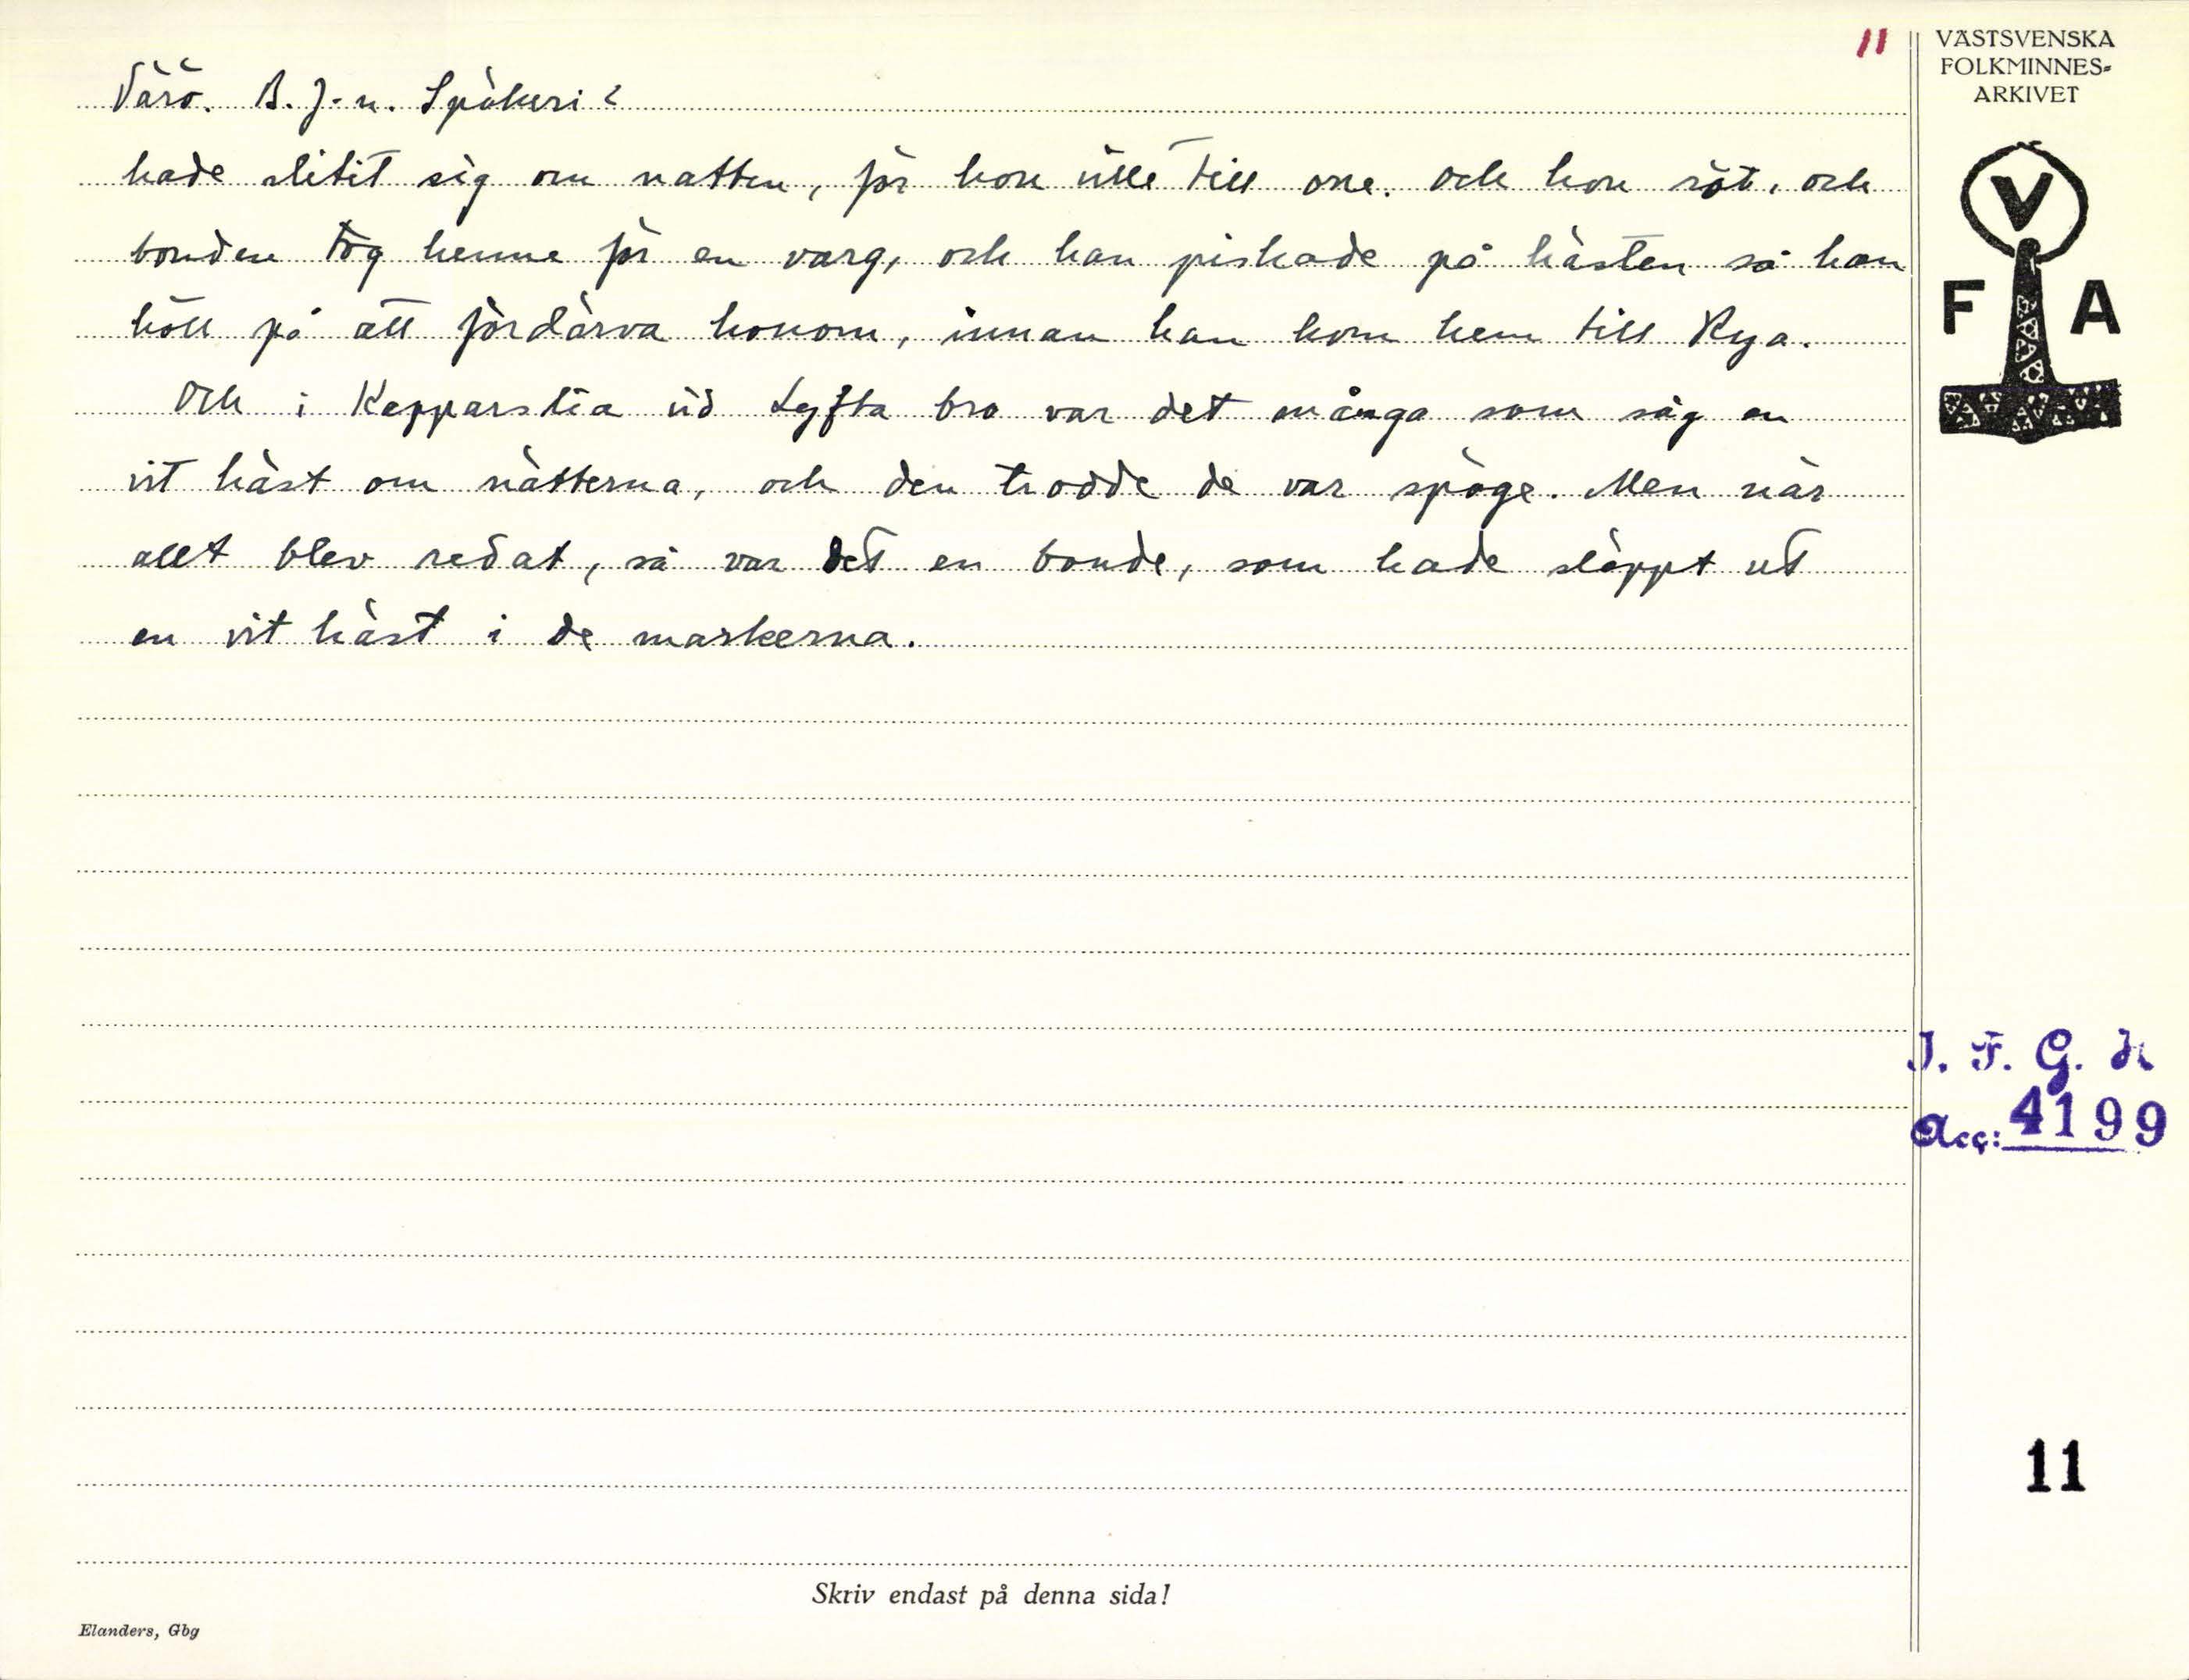 11
Värö. B. J-n. Spökeri 2
hade slitit sig om natten, för hon ville till oxe. och hon röt, och
bonden tog henne för en varg, och han piskade på hästen så han
höll på att fördärva honom, innan han kom hem till Rya.
Och i Kepparslia vid Lyfta bro var det många som såg en
vit häst om nätterna, och den trodde de var spöge. Men när
allt blev redat, så var det en bonde, som hade släppt ut
en vit häst i de markerna.
VÄSTSVENSKA
FOLKMINNES-
ARKIVET
V
F A
I. F. G. H
Acc: 4199
11
Skriv endast på denna sida!
Elanders, Gbg